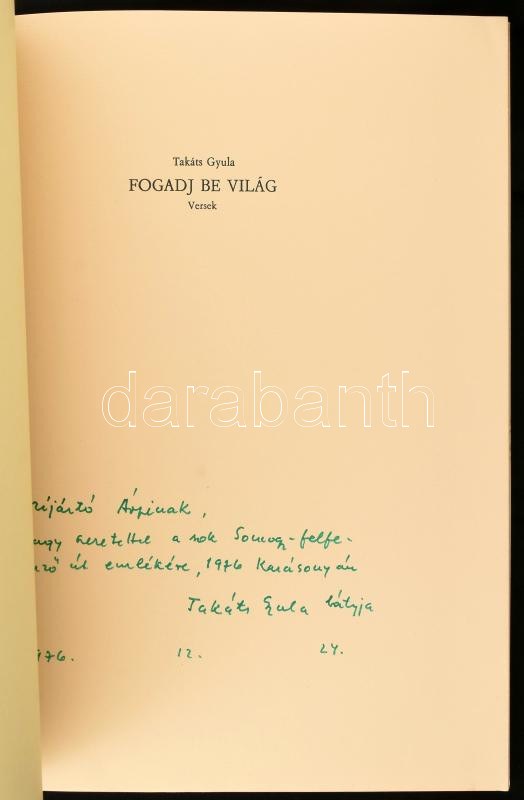 Takáts Gyula
FOGADJ BE VILÁG
Versek
darabanth
zíjártó Árpinak,
nagy szeretettel a sok Somogy-felfe-
ző út emlékére, 1976 Karácsonyán
Takáts Gyula bátyja
976. 12. 24.